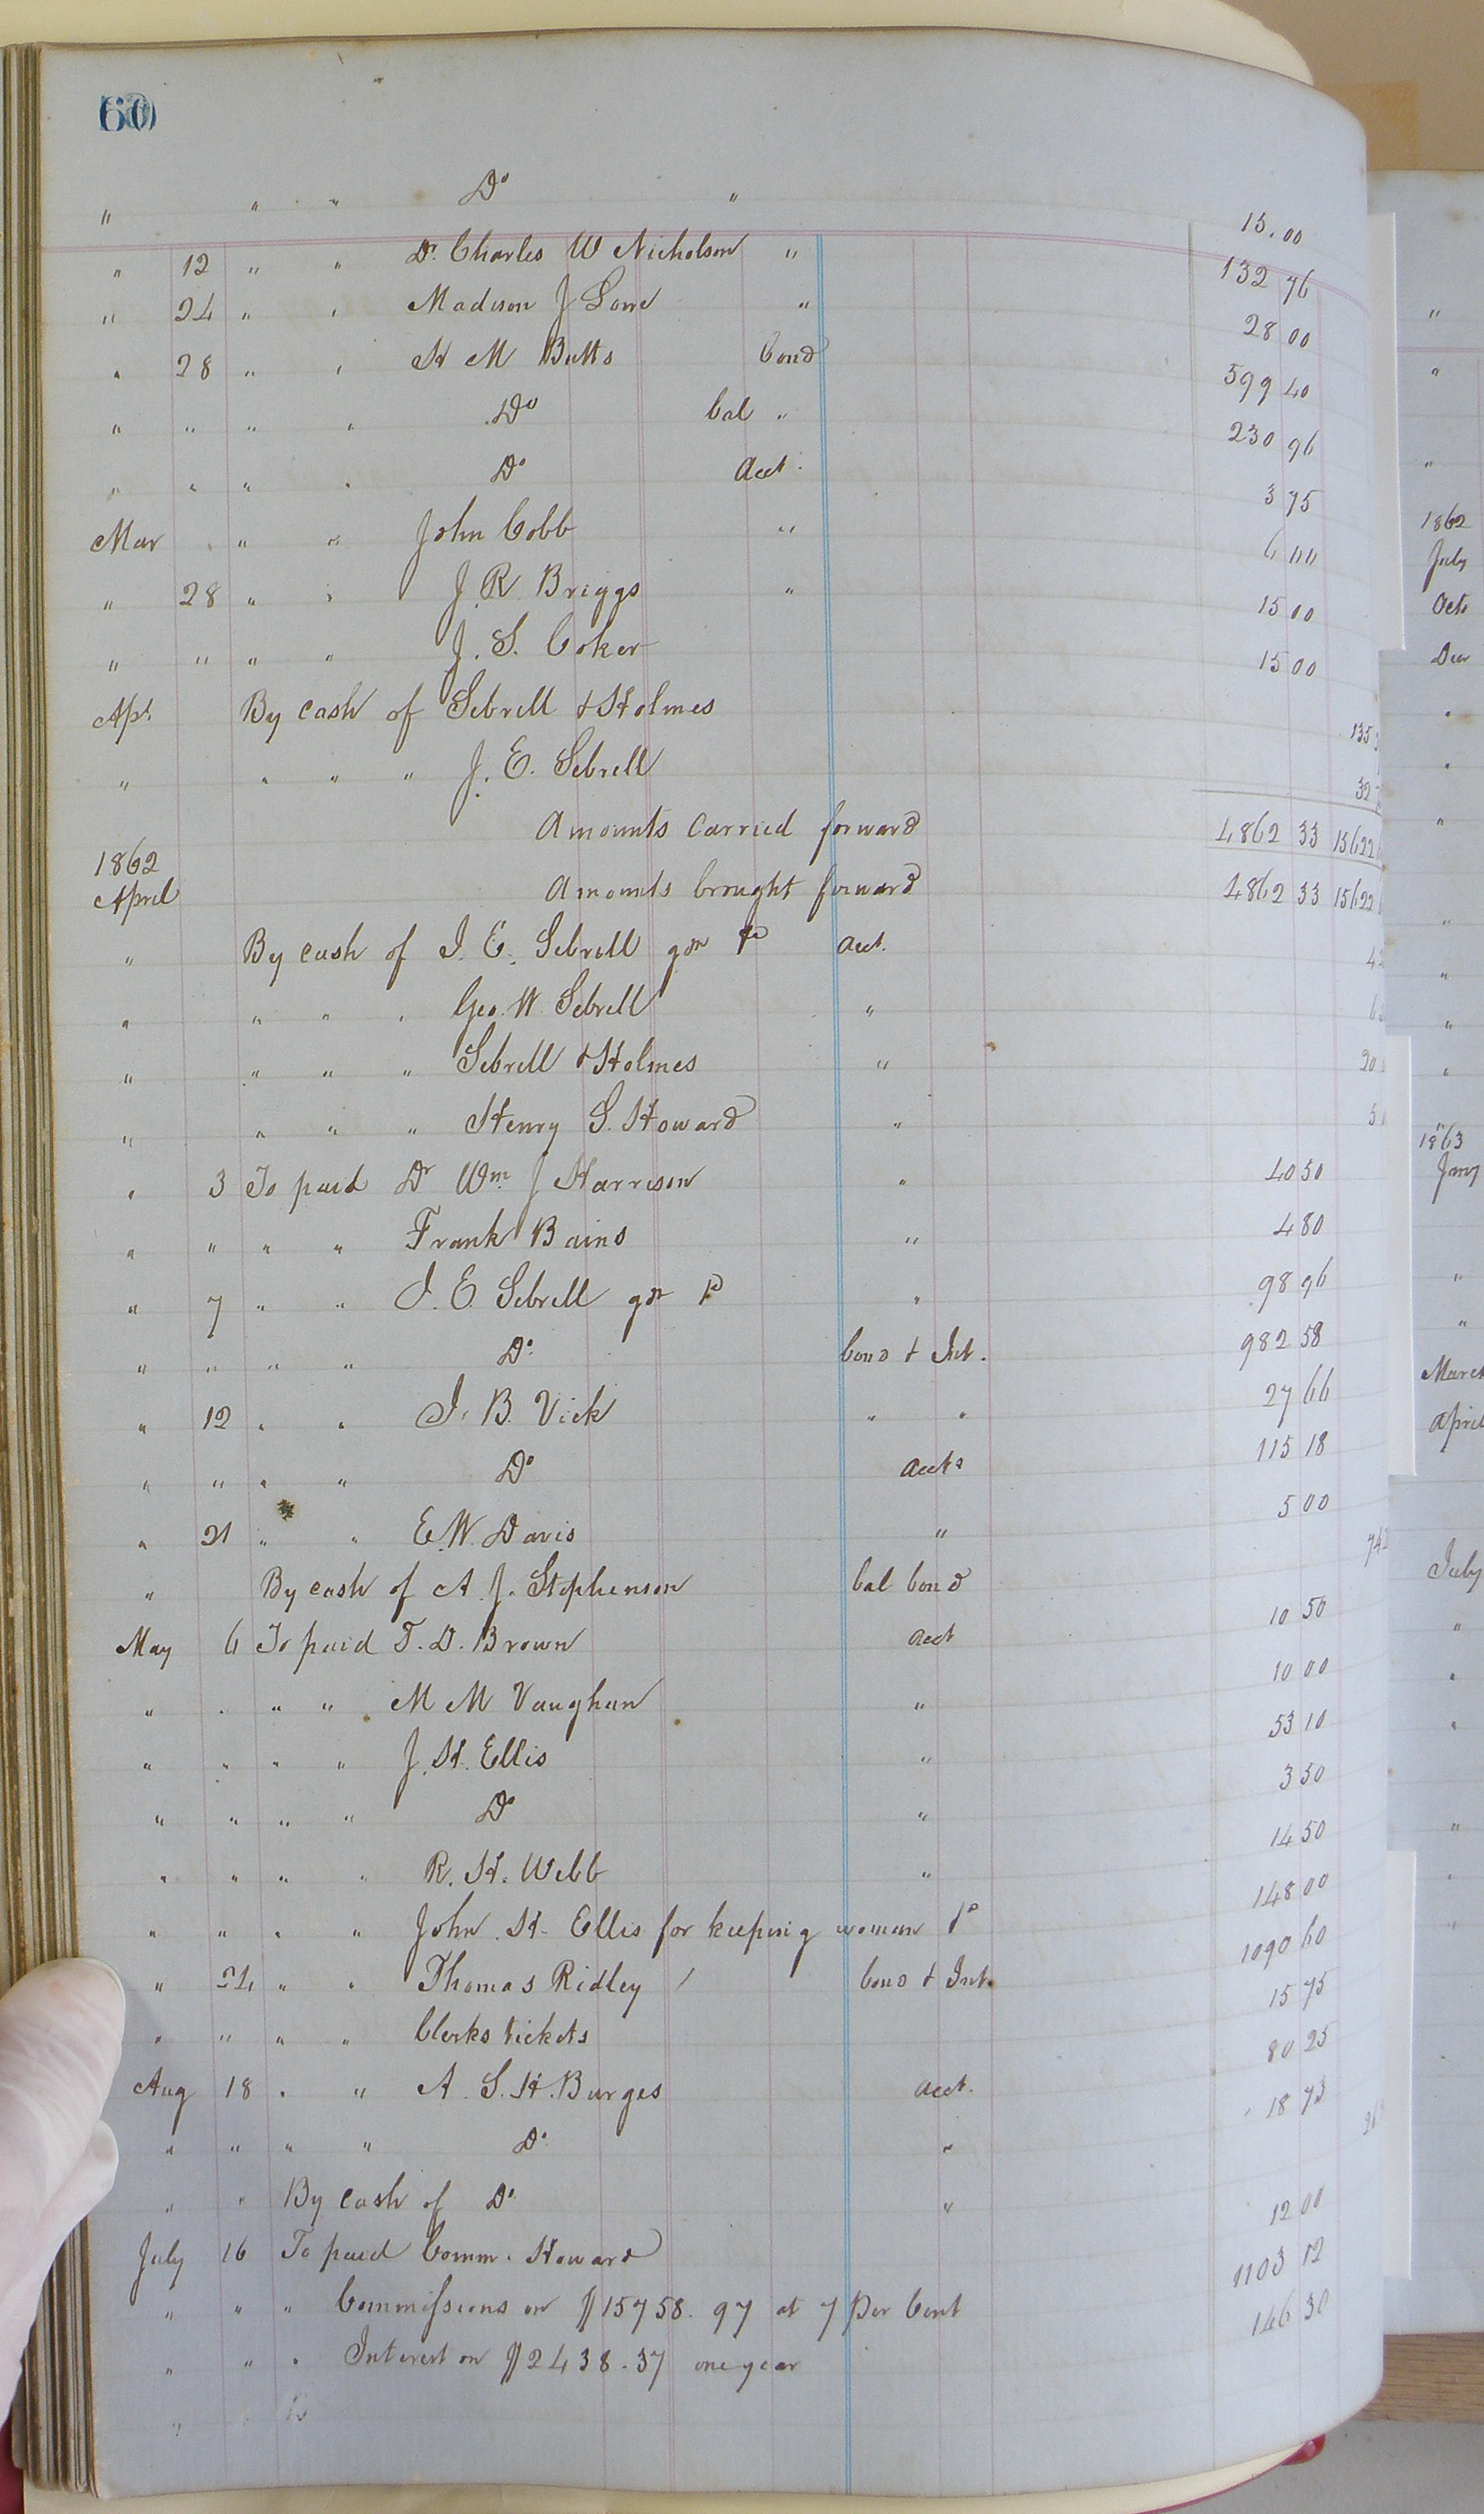 60
" " " Do " 15.00
" 12 " " Dr. Charles W Nicholson " 132 76
" 24 " " Madison J " 28 00
" 28 " " H M Butts bond 599 40
" " " " Do bal " 230 96
" " " " Do Acct. 3 75
Mar " " John Cobb " 6 00
" 28 " " J. R. Briggs " 15 00
" " " " J. S. Coker 15 00
Apl. By cash of Sebrell & Holmes 135
" " " " J. E. Sebrell 32
Amounts carried forward 4862 33 15622
1862
April Amounts brought forward 4862 33 15622
" By cash of J. E. Sebrell gdn Acct.
" " " " Geo. W. Sebrell "
" " " " Sebrell & Holmes " 20
" " " " Henry S. Howard " 5
" 3 To paid Dr Wm. J Harrison " 40 50
" " " " Frank Bains " 4 80
" 7 " " J. E. Sebrell gdn " 98 96
" " " " Do. bond & Int. 982 58
" 12 " " J. B. Vick " " 27 66
" " " " Do Accts 115 18
" 21 " " E. W. Davis " 5 00
" By cash of A. J. Stephenson bal bond 742
May 6 To paid T. D. Brown acct 10 50
" " " " M M Vaughan " 10 00
" " " " J. H. Ellis " 53 10
" " " " Do " 3 50
" " " " R. H. Webb " 14 50
" " " " John H. Ellis for keeping woman 148 00
" 24 " " Thomas Ridley bond & Int. 1090 60
" " " " Clerks tickets 15 75
Aug 18 " " A. S. H. Burges acct. 80 25
" " " " Do. " 18 73
" " By cash of Do. "
July 16 To paid Comm. Howard 12 00
" " " Commissions on $15758.97 at 7 Per Cent 1103 12
" " " Interest on $2438.37 one year 146 30
"
"
"
1862
July
Octo
Decr
"
"
"
"
"
"
"
1863
Jany
"
"
March
April
July
"
"
"
"